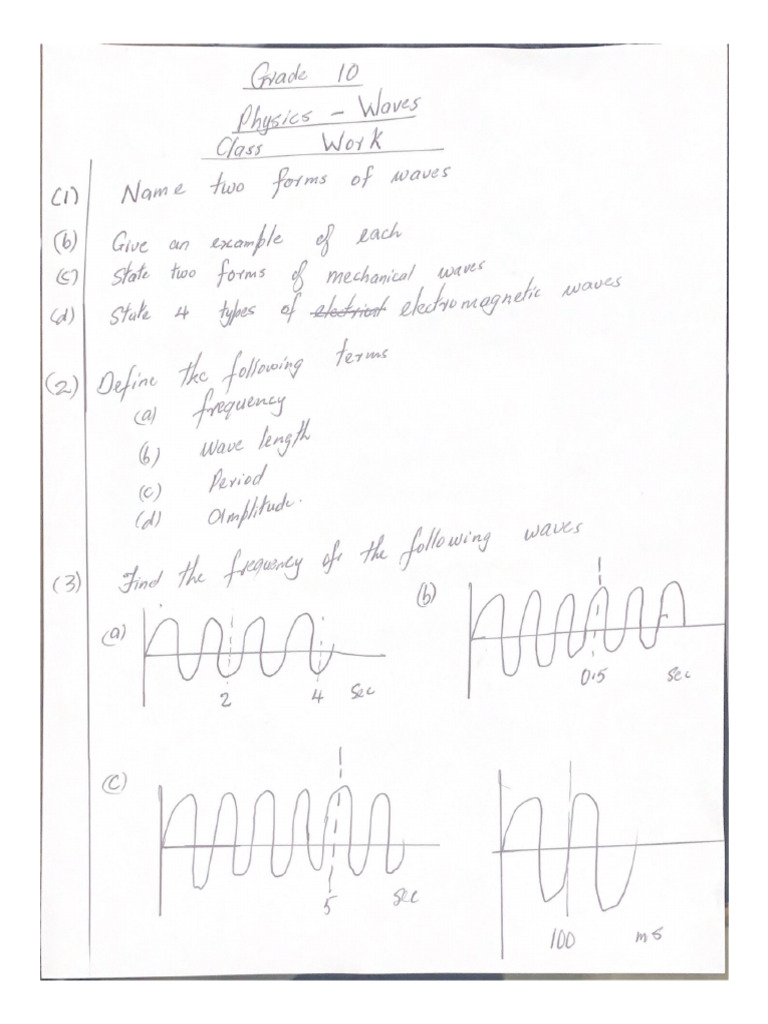 Grade 10
Physics - Waves
Class Work
(1) Name two forms of waves
(b) Give an example of each
(c) State two forms of mechanical waves
(d) State 4 types of electrical electromagnetic waves
(2) Define the following terms
(a) frequency
(b) Wave length
(c) Period
(d) Amplitude.
(3) Find the frequency of the following waves
(a)
2 4 Sec
(b)
0.5 Sec
(c)
5 Sec
100 ms